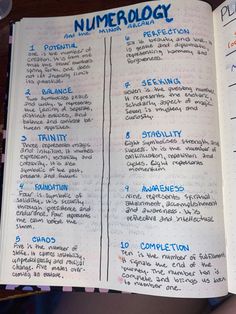 NUMEROLOGY
and the MINOR ARCANA
1 POTENTIAL
One is the number of
creation. It is from one
that all other numbers
spring forth. One does
not its infinity limit
its potential.
2 BALANCE
Two symbolizes peace
and unity. It represents
the joining of separate,
distinct entities, and
balance and contrast be-
tween opposites.
3 TRINITY
Three represents magic
and intuition, it invokes
expression, versatility and
creativity. It is also
symbolic of the past,
present and future.
4 FOUNDATION
Four is symbolic of
solidity. It is sturdy
through persistence and
endurance. Four represents
the calm before the
storm.
5 CHAOS
Five is the number of
strife. It carries instability,
unpredictability and radical
change. Five makes over-
coming is possible.
6 PERFECTION
Six is beauty and love. It
is gentle and diplomatic,
representing harmony and
forgiveness.
7 SEEKING
Seven is the questing number.
It represents the esoteric
scholarly aspects of magic.
Seven is mystery and
curiosity.
8 STABILITY
Eight symbolizes strength and
success. It is the number of
continuation, repetition, and
cycles. Eight represents
momentum.
9 AWARENESS
Nine represents spiritual
attainment, accomplishment
and awareness. It is
reflective and intellectual
10 COMPLETION
Ten is the number of fulfillment.
It signals the end of the
journey. The number ten is
complete, and brings us back
to number one.